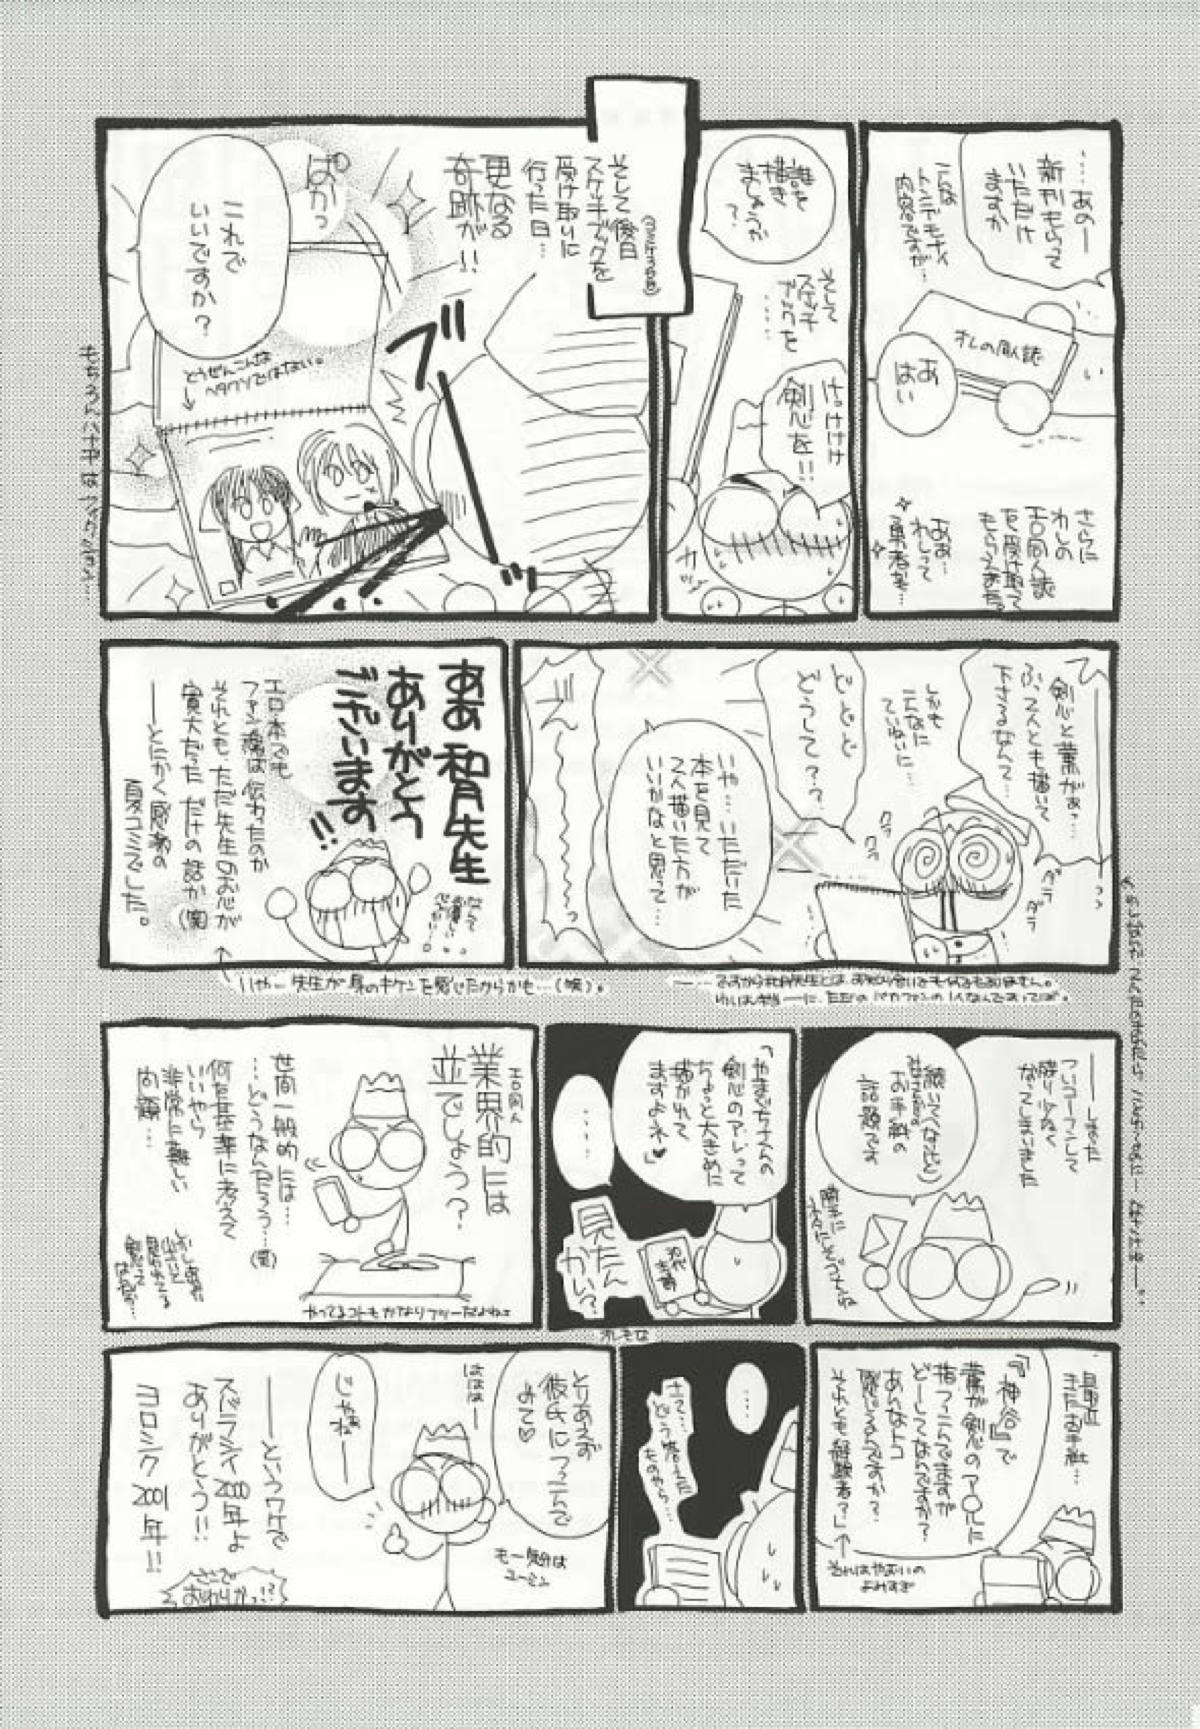 ……あのー
新刊もらって
いただけ
ますか
こんな
トンデモナイ
内容ですが…
オレの同人誌
あ
はい
さらに
わしの
エロ同人誌
を受け取って
もらえました。
ああ…
わしって
勇者か…
誰を
描き
ましょうか
？
そして
スケッチ
ブックを
……
けっけけけ
剣心を!!
カッ
そして後日
スケッチブックを
受け取りに
行った日…
更なる
奇跡が!!
ぱかっ
これで
いいですか？
とうぜんこんな
ヘタクソではない。
ブッ
剣心と薫がぁっ…
ふっ２人とも描いて
下さるなんて…
しかも
こんなに
ていねいに…
どどど
どうして？？
クラ
クラ
ダラ
ダラ
いや…いただいた
本を見て
２人描いた方が
いいかなと思って…
――…ですから和月先生とは、お知り合いでも何でもありません。
ただのバカファンの1人なんであってば。
ああ和月先生
ありがとう
ございます
!!
エロ本でも
ファン魂は伝わったのか
それとも、ただ先生のお心が
寛大だっただけの話か(笑)
――とにかく感謝の
夏コミでした。
いやー先生が身のキケンを感じたからかも…(笑)。
――しまった
ついコーフンして
残り少なく
なってしまいました
続いて(なけど)
みなさまの
お手紙の
話題です
「やまぐちさんの
剣心のアレって
ちょっと大きめに
描かれて
ますよネ♥」
……
見たん
かい？
エロ同人
業界的には
並でしょう？
世間一般的には…
…どうなんだろう…(笑)
何を基準に考えて
いいやら
非常に難しい
問題…
やってるコトもかなりフツーだよねェ
最近
きたお手紙…
『神谷』で
薫が剣心のア〇ルに
指つっこんでますが
どーしてなんですか？
あんなトコ
感じるんですか？
それとも経験者？」
それはやおいの
よみすぎ
…
さて…
どう答えた
ものやら…
とりあえず
彼氏につっこんで
みて♡
ははは―
も一気分は
ユーミン
じゃあ
ねー
――というワケで
スバラシイ2000年よ
ありがとう!!
ヨロシク2001年!!
ここで
おわりかっ!?